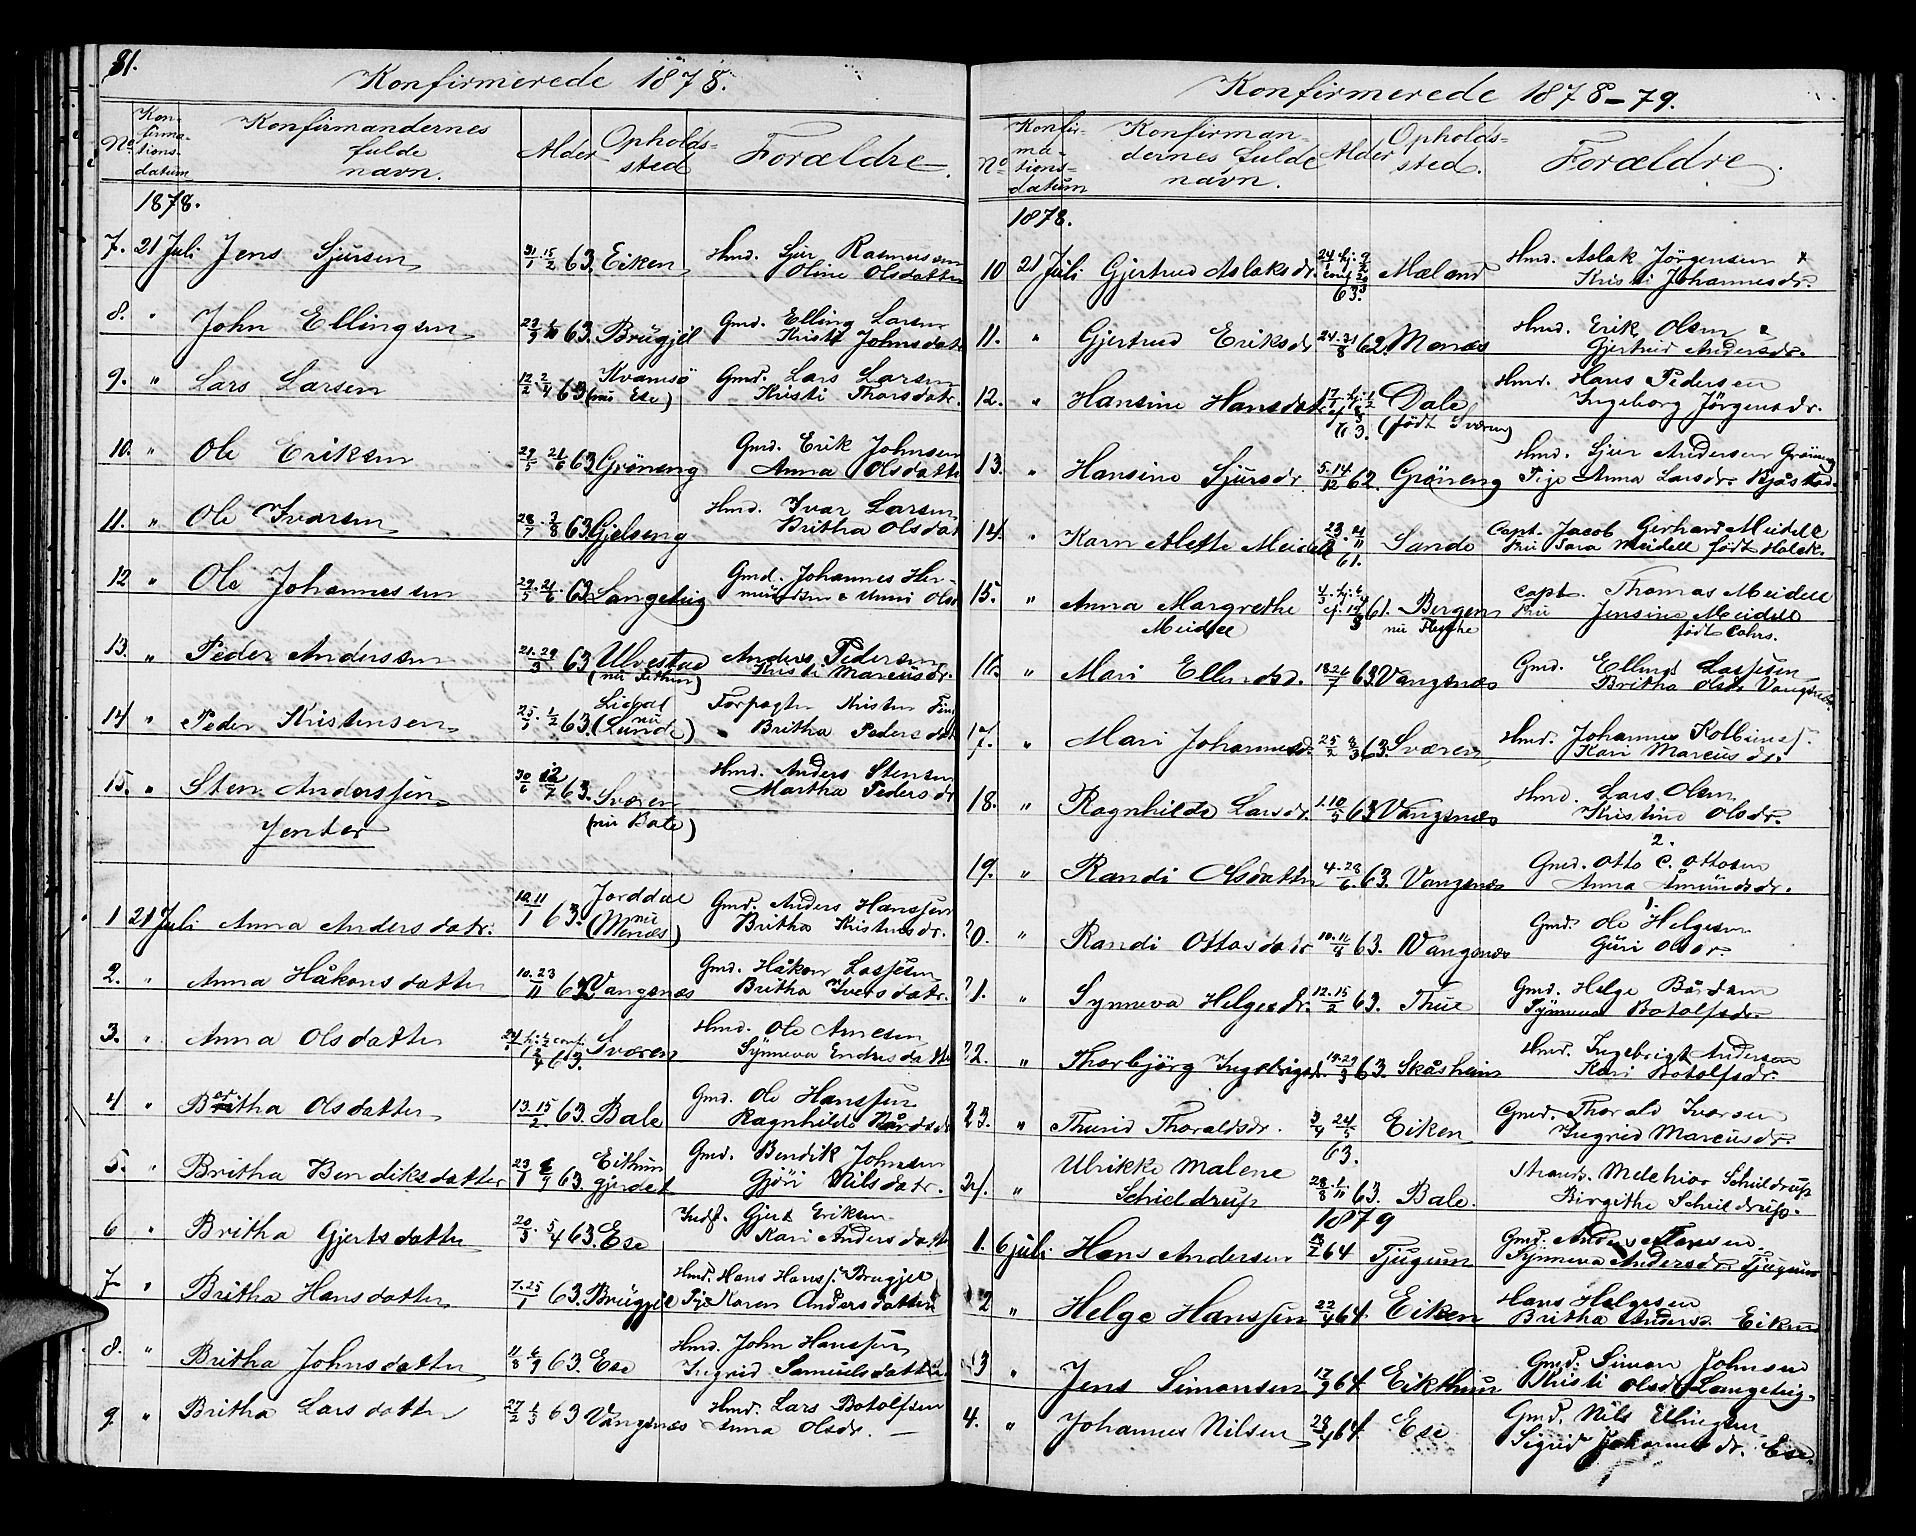 81.
Konfirmerede 1878.
No Kon-firma-tions-datum Konfirmandernes fulde navn. Alder Opholds-sted Forældre.
1878.
7. 21 Juli Jens Sjursen 31/1 15/2 63. Eiken Hmd. Sjur Rasmussen
Oline Olsdatter
8. " John Ellingsen 63. Brügjel Gmd. Elling Larsen
Kristi Johnsdatr
9. " Lars Larsen 12/2 2/4 63 Kvamsö (nu Ese) Gmd. Lars Larsen
Kristi Thorsdatr.
10. " Ole Eriksen 29/5 21/6 63 Gröneng Gmd. Erik Johnsen
Anna Olsdatter
11. " Ole Ivarsen 28/7 3/8 63. Gjelseng Hmd. Ivar Larsen
Britha Olsdat
12 " Ole Johannessen 29/5 21/6 63 Langeteig Gmd. Johannes Her-
13. " Peder Anderssen 21. 29/3 63 Ulvestad Anders Pedersen
Kristi Marcusdr.
14 " Peder Kristensen 25/1 1/2 63. Lidal (nu Lunde) Forpagter Kristen
Britha Pedersdatr
15. " Sten Anderssen 30/6 12/7 63. Sværen (nu Bale) Hmd. Anders Stensen
Martha Pedersdr
Jenter
1 21 Juli Anna Andersdatr. 10. 11/1 63. Jorddal (nu Menæs) Gmd. Anders Hanssen
Britha Kristensdr.
2. " Anna Håkonsdatter 10. 23/11 62 Vangsnæs Gmd. Håkon Lassesen
Britha Iversdatr.
3. " Anna Olsdatter 63. Sværen Hmd. Ole Arnesen
Synneva Endresdatte
4 " Britha Olsdatter 13. 15/2 63 Bale Gmd. Ole Hanssen
Ragnhilde Bårdsdr
5. " Britha Bendiksdatter 63 Eithungjerdet Gmd. Bendik Johnsen
Gjöri Nilsdatr.
6 " Britha Gjertsdatter 20/3. 5/4 63. Ese Indst. Gjert Eriksen
Kari Andersdatte
7 " Britha Hansdatter 7. 25/1 63. Brüggjel Hmd. Hans Hanss. Brugjel
Pige Karen Andersdatter
8. " Britha Johnsdatter 11/8 6/9 63. Ese Hmd. John Hanssen
Ingrid Samuelsdatter
9 " Britha Larsdatter 27/2 1/3 63 Vangsnæs Hmd. Lars Botolfsen
Anna Olsdr. —
Konfirmerede 1878–79.
No Konfir-ma-tions-datum Konfirman-dernes fulde navn. Alder Opholds-sted. Forældre.
1878.
10 21 Juli Gjertrud Aslaksdr. 63. Mæland Hmd. Aslak Jörgensen
Kristi Johannesdr.
11. " Gjertrud Eriksdr 24. 31/8 62. Menæs Hmd. Erik Olsen
Gjertrud Andersdr.
12. " Hansine Hansdatr 63. Dale (födt Sværen) Hmd. Hans Pedersen
Ingeborg Jörgensdr.
13. " Hansine Sjursdr. 5. 14/12 62. Gröneng Hmd. Sjur Andersen Gröneng
Pige Anna Larsdr. Bjåstad.
14. " Karn Alette Meidell 61. Sande Capt. Jacob Gerhard Meidell
Fru Sara Meidell födt Holck.
15. " Anna Margrethe Meidell 61. Bergen Capt. Thomas Meidell
Fru Jensine Meidell
födt Cohrs.
16. " Mari Ellendsd. 18 26/7 63. Vangsnæs Gmd. Ellend Lassesen
Britha Olsdr Vangsnæs.
17. " Mari Johannesdr. 63. Sværen Hmd. Johannes Kolbeins.
Kari Marcusdr.
18. " Ragnhilde Larsdr. 1. 10/5 63 Vangsnæs Hmd. Lars Olsen
Kristine Olsdr.
2.
19. " Randi Olsdatter 4. 28/6. 63. Vangsnæs Gmd. Otto C. Ottosen
Anna Amundsdr.
1.
20. " Randi Ottosdatr 63. Vangsnæs Gmd. Ole Helgesen
Guri Olsdr.
21. " Synneva Helgesdr. 12. 15/2 63. Thue Gmd. Helge Bårdsen
Synneva Botolfsdr.
22. " Thorbjörg Ingebrigtsd. 19. 29/3 63. Skåsheim Hmd. Ingebrigt Andersen
Kari Botolfsdr.
23. " Thurid Thoraldsdr. 3/4 26/5 63. Eiken Gmd. Thorald Iversen
Ingrid Marcusdr.
24. " Ulrikke Malene Schieldrup 28/8 1/11 63. Bale. Strands. Melchior Schieldrup
Birgithe Schieldrup.
1879
1. 6 juli Hans Andersen 64 Tjugum Gmd. Anders Hansen
Synneva Andersdr. Tjugum
2 " Helge Hanssen 22/4 64. Eiken Hans Helgesen
Britha Andersd. Eiken
3 " Jens Simonsen 17/9 64 Eikthun Gmd. Simon Johnsen
Kristi Olsdr Langeteig.
4. " Johannes Nilsen 64 Ese Gmd. Nils Ellingsen
Sigrid Johannesdr. Ese.